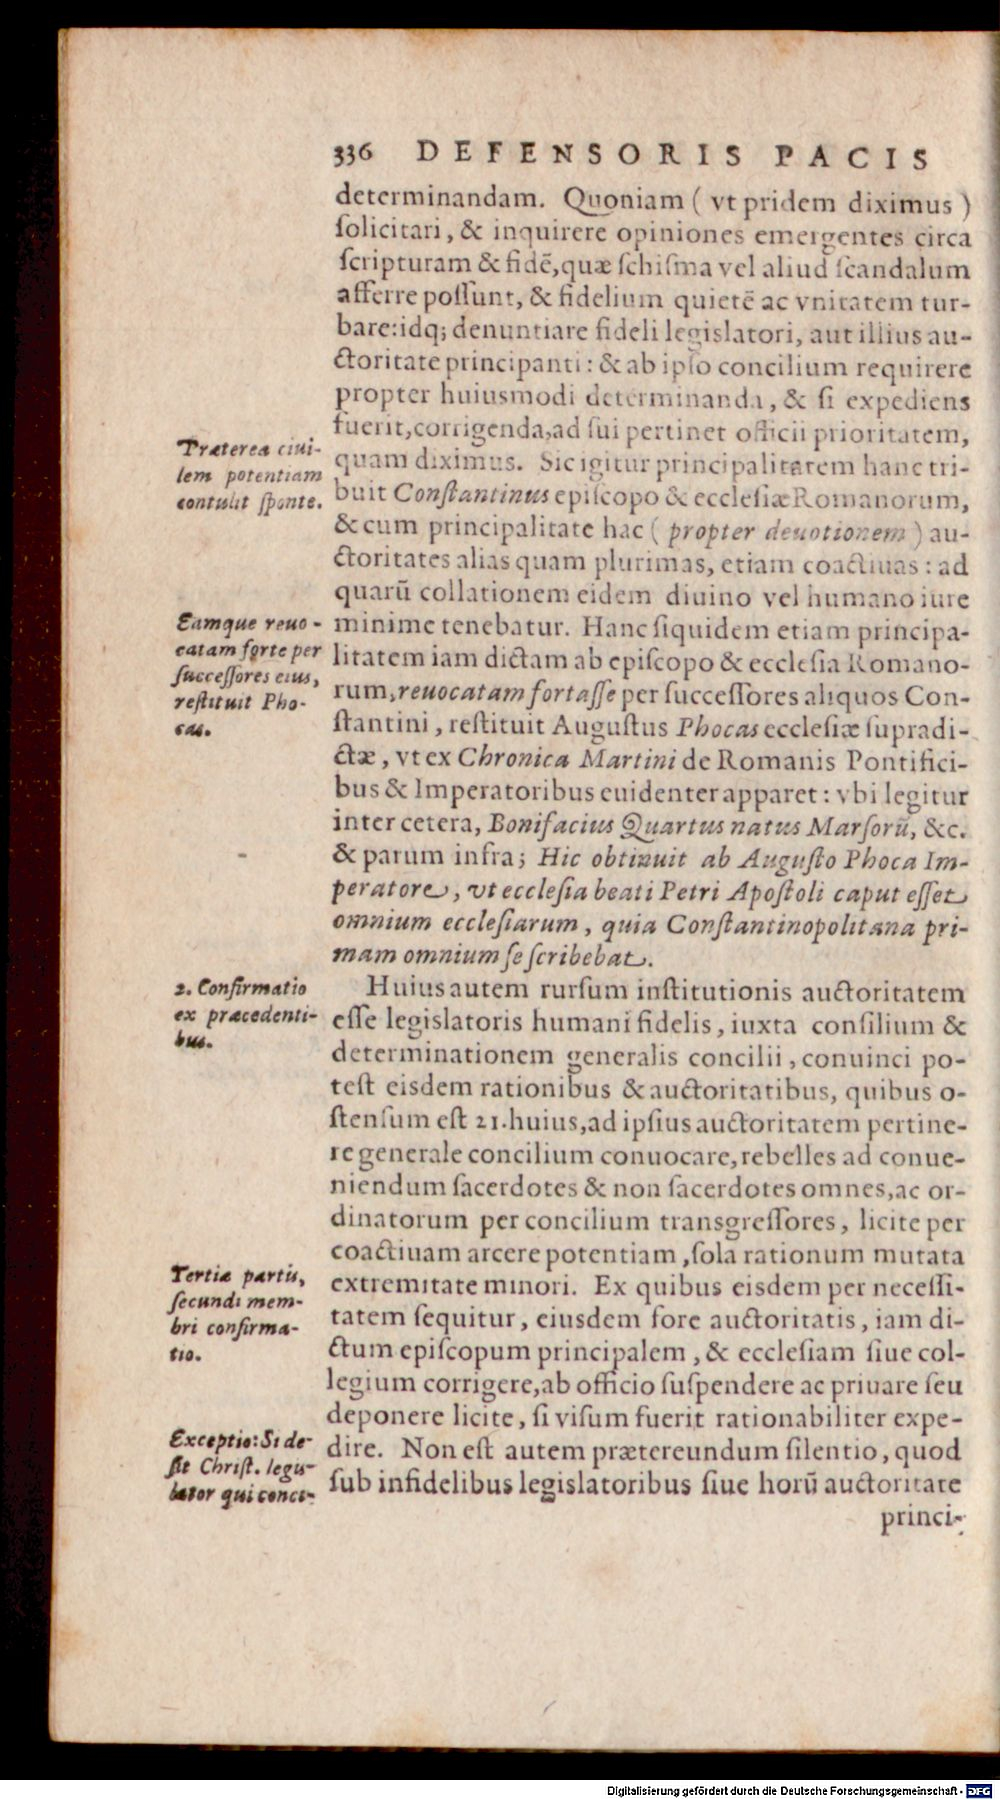 336 DEFENSORIS PACIS
determinandam. Quoniam ( vt pridem diximus )
ſolicitari, & inquirere opiniones emergentes circa
ſcripturam & fidē, quæ ſchiſma vel aliud ſcandalum
afferre poſſunt, & fidelium quietē ac vnitatem tur-
bare: idq; denuntiare fideli legislatori, aut illius au-
ctoritate principanti: & ab ipſo concilium requirere
propter huiusmodi determinanda, & ſi expediens
fuerit, corrigenda, ad ſui pertinet officii prioritatem,
quam diximus. Sic igitur principalitatem hanc tri-
buit Conſtantinus epiſcopo & eccleſiæ Romanorum,
& cum principalitate hac ( propter deuotionem ) au-
ctoritates alias quam plurimas, etiam coactiuas: ad
quarū collationem eidem diuino vel humano iure
minime tenebatur. Hanc ſiquidem etiam principa-
litatem iam dictam ab epiſcopo & eccleſia Romano-
rum, reuocatam fortaſſe per ſucceſſores aliquos Con-
ſtantini, reſtituit Auguſtus Phocas eccleſiæ ſupradi-
ctæ, vt ex Chronica Martini de Romanis Pontifici-
bus & Imperatoribus euidenter apparet: vbi legitur
inter cetera, Bonifacius Quartus natus Marſorū, &c.
& parum infra; Hic obtinuit ab Auguſto Phoca Im-
peratore, vt eccleſia beati Petri Apoſtoli caput eſſet
omnium eccleſiarum, quia Conſtantinopolitana pri-
mam omnium ſe ſcribebat.
Huius autem rurſum inſtitutionis auctoritatem
eſſe legislatoris humani fidelis, iuxta conſilium &
determinationem generalis concilii, conuinci po-
teſt eisdem rationibus & auctoritatibus, quibus o-
ſtenſum eſt 21. huius, ad ipſius auctoritatem pertine-
re generale concilium conuocare, rebelles ad conue-
niendum ſacerdotes & non ſacerdotes omnes, ac or-
dinatorum per concilium transgreſſores, licite per
coactiuam arcere potentiam, ſola rationum mutata
extremitate minori. Ex quibus eisdem per neceſſi-
tatem ſequitur, eiusdem fore auctoritatis, iam di-
ctum epiſcopum principalem, & eccleſiam ſiue col-
legium corrigere, ab officio ſuſpendere ac priuare ſeu
deponere licite, ſi viſum fuerit rationabiliter expe-
dire. Non eſt autem prætereundum ſilentio, quod
ſub infidelibus legislatoribus ſiue horū auctoritate
princi-
Præterea ciui-
lem potentiam
contulit ſponte.
Eamque reuo-
catam forte per
ſucceſſores eius,
reſtituit Pho-
cas.
2. Confirmatio
ex præcedenti-
bus.
Tertiæ partis,
ſecundi mem-
bri confirma-
tio.
Exceptio: Si de-
ſit Chriſt. legis-
lator qui conci-
Digitalisierung gefördert durch die Deutsche Forschungsgemeinschaft - DFG